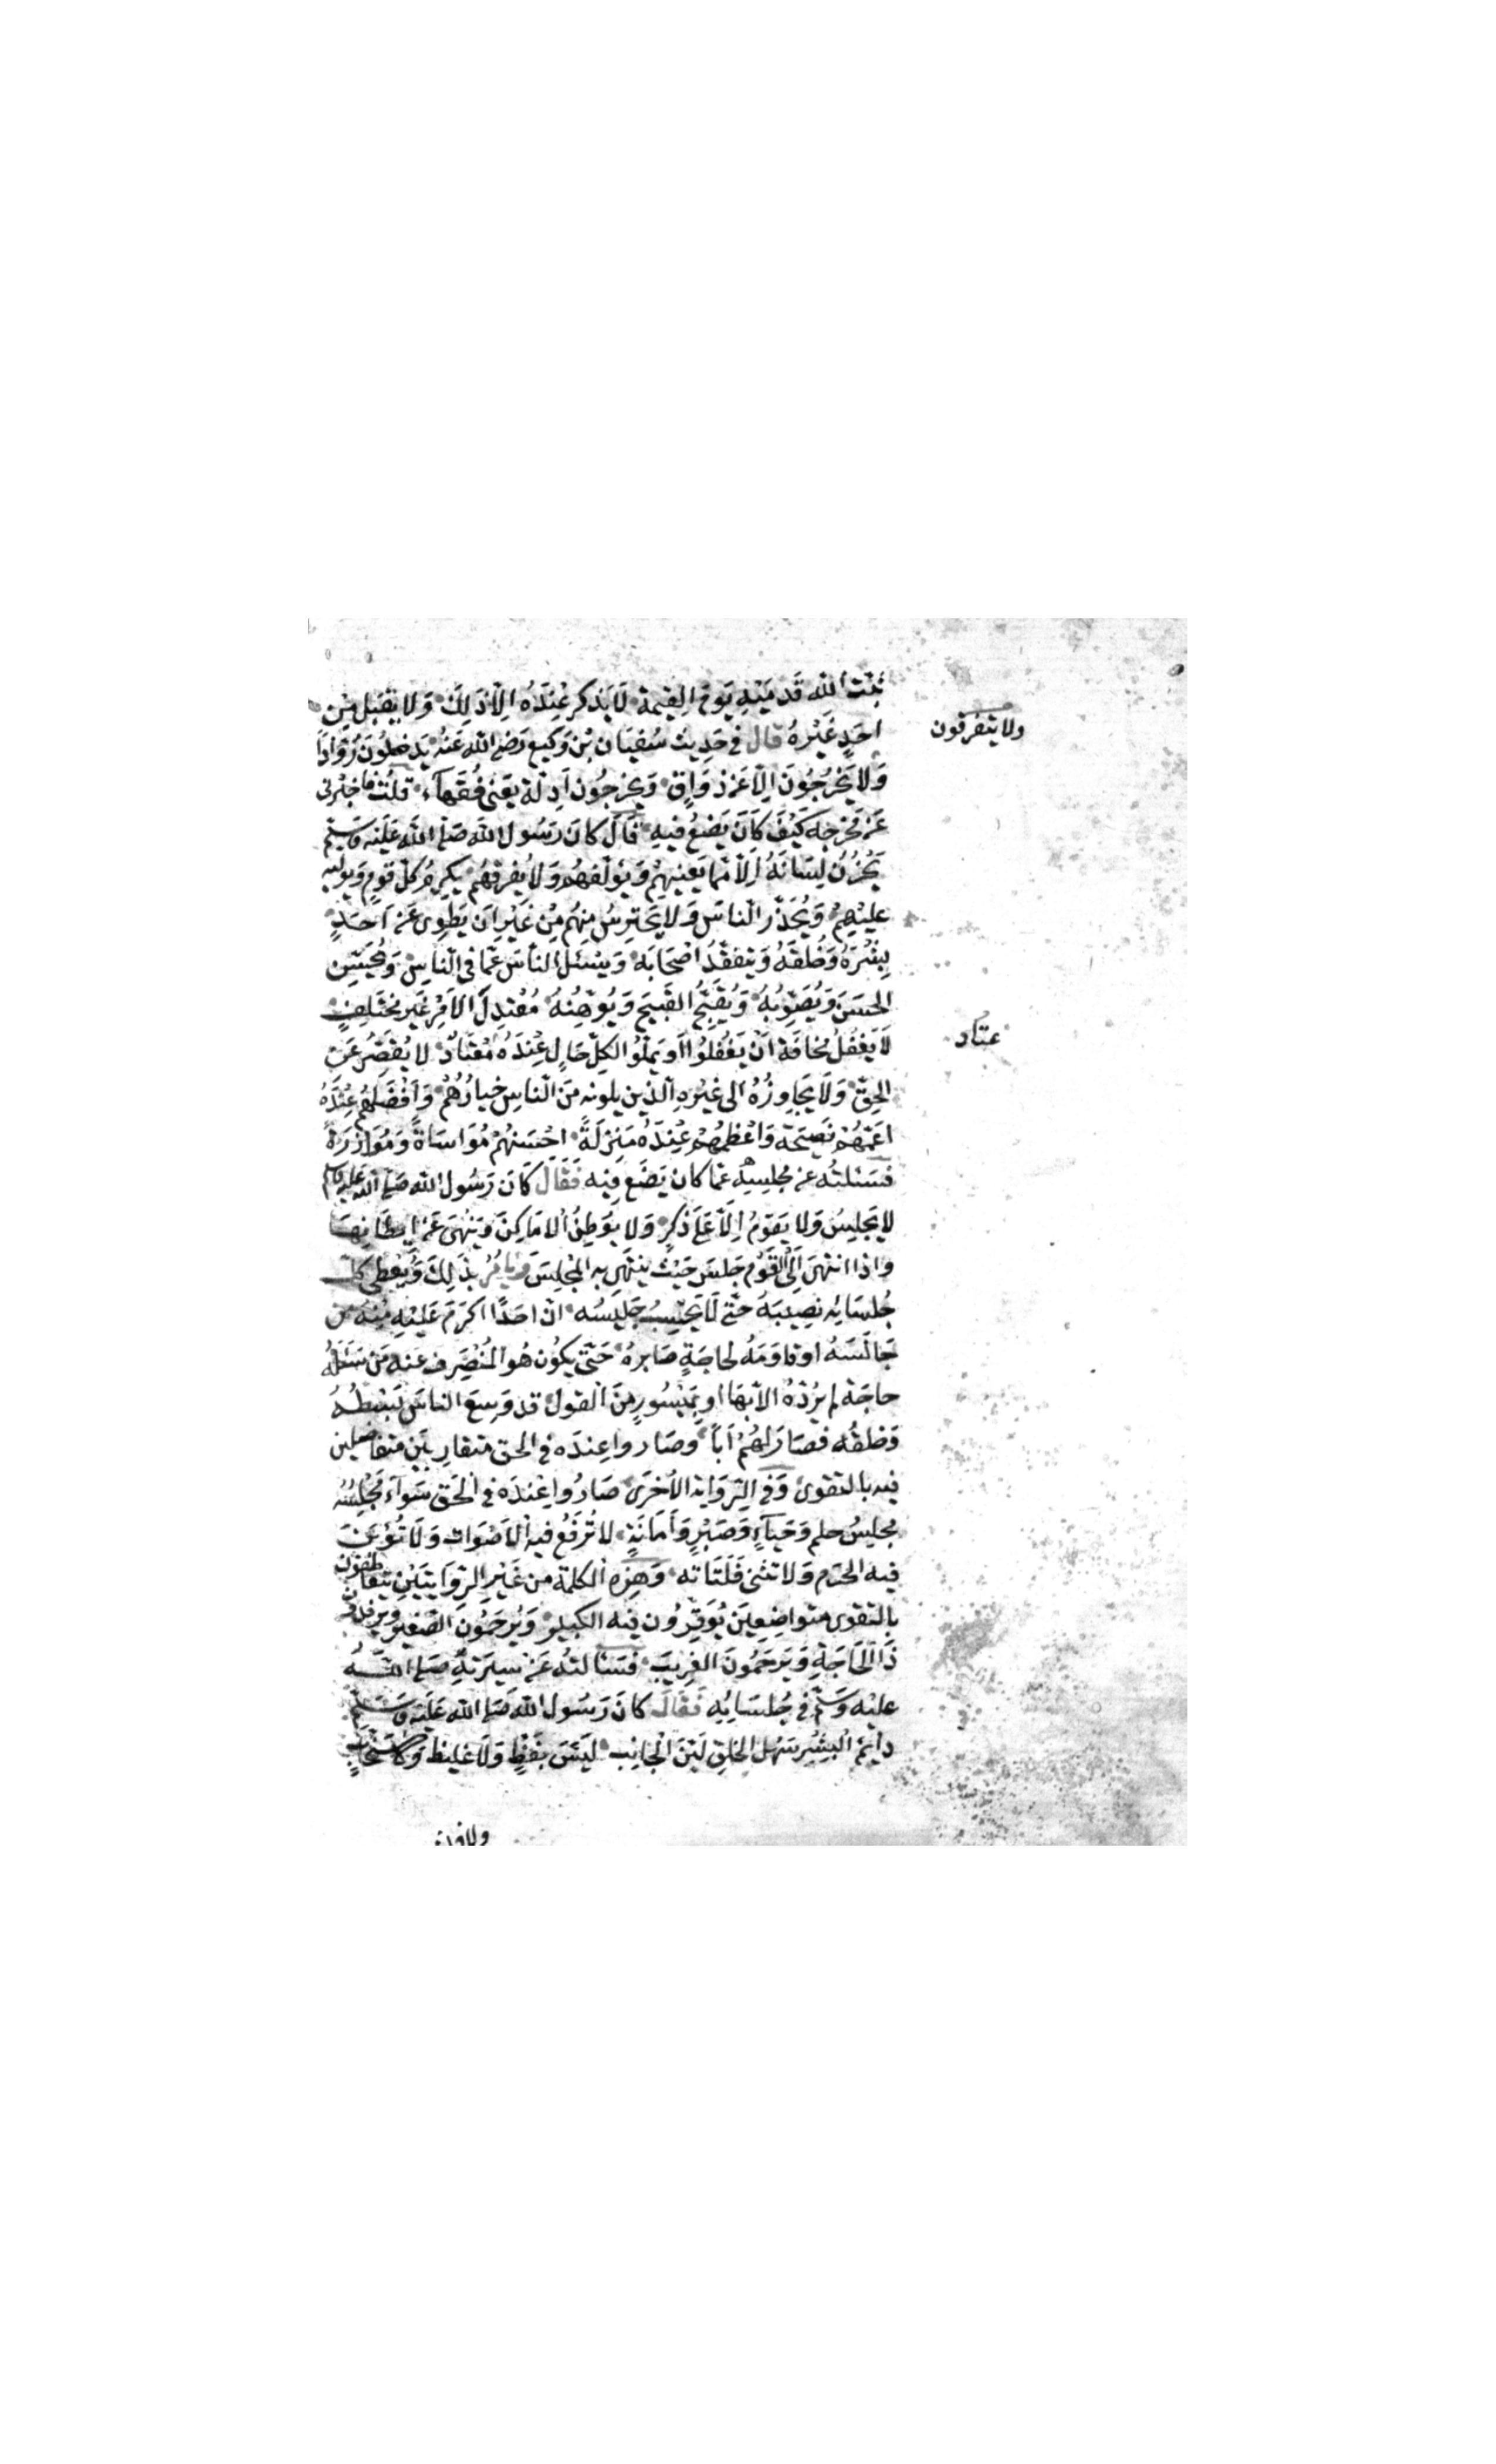 ثبت الله قدميه يوم القيمة لا يذكر عنده الا ذلك ولا يقبل من
ولا يتفرقون
احد غيره قال في حديث سفيان بن وكيع رضى الله عنه يدخلون روادا
ولا يخرجون الا عن ذواق ويخرجون ادلة يعنى فقهآء قلت فاخبرنى
عن مخرجه كيف كان يصنع فيه قال كان رسول الله صلى الله عليه وسلم
يخزن لسانه الا مما يعنيهم ويؤلفهم ولا يفرقهم يكرم كل قوم ويوليه
عليهم ويحذر الناس ولا يحترس منهم من غير ان يطوى عن احد
بشره وخلقه ويتفقد اصحابه ويسئل الناس عما في الناس ويحسن
الحسن ويصوبه ويقبح القبيح ويوهنه معتدل الامر غير مختلف
عتاد
لا يغفل مخافة ان يغفلوا او يملوا لكل حال عنده معتاد لا يقصر عن
الحق ولا يجاوزه الى غيره الذين يلونه من الناس خيارهم وافضلهم عنده
اعمهم نصيحة واعظمهم عنده منزلة احسنهم مواساة وموازرة
فسئلته عن مجلسه عما كان يصنع فيه فقال كان رسول الله صلى الله عليه وسلم
لا يجلس ولا يقوم الا على ذكر ولا يوطن الاماكن وينهى عن ايطانها
واذا انتهى الى القوم جلس حيث ينتهى به المجلس ويامر بذلك ويعطى كل
جلسائه نصيبه حتى لا يحسب جليسه ان احدا اكرم عليه منه من
جالسه او قاومه لحاجة صابره حتى يكون هو المنصرف عنه من سئله
حاجة لم يرده الا بها او بميسور من القول قد وسع الناس بسطه
وخلقه فصار لهم ابا وصاروا عنده في الحق متقاربين متفاضلين
فيه بالتقوى وفي الرواية الاخرى صاروا عنده في الحق سوآء مجلسه
مجلس حلم وحيآء وصبر وامانة لا ترفع فيه الاصوات ولا تؤبن
فيه الحرم ولا تنثى فلتاته وهذه الكلمة من غير الروايتين يتعاطفون
بالتقوى متواضعين يوقرون فيه الكبير ويرحمون الصغير ويرفدون
ذا الحاجة ويرحمون الغريب فسالته عن سيرته صلى الله
عليه وسلم في جلسائه فقال كان رسول الله صلى الله عليه وسلم
دايم البشر سهل الخلق لين الجانب ليس بفظ ولا غليظ ولا سخاب